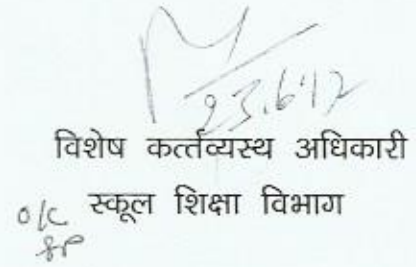 23.6.12
विशेष कर्त्तव्यस्थ अधिकारी
स्कूल शिक्षा विभाग
o/c